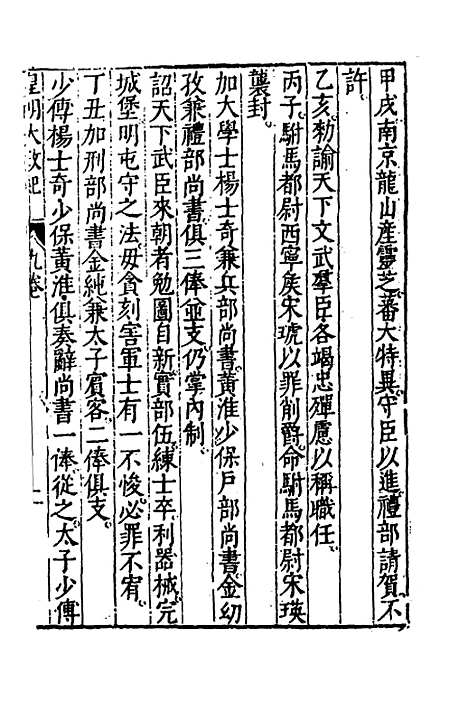 甲戌南京龍山產靈芝蕃大特異守臣以進禮部請賀不
許
乙亥勑諭天下文武羣臣各竭忠殫慮以稱職任
丙子駙馬都尉西寧矦宋琥以罪削爵命駙馬都尉宋瑛
襲封
加大學士楊士奇兼兵部尚書黃淮少保戶部尚書金幼
孜兼禮部尚書俱三俸並支仍掌內制
詔天下武臣來朝者勉圖自新實部伍練士卒利器械完
城堡明屯守之法毋貪刻害軍士有一不悛必罪不宥
丁丑加刑部尚書金純兼太子賓客二俸俱支
少傅楊士奇少保黃淮俱奏辭尚書一俸從之太子少傅
皇明大政記 九卷 二